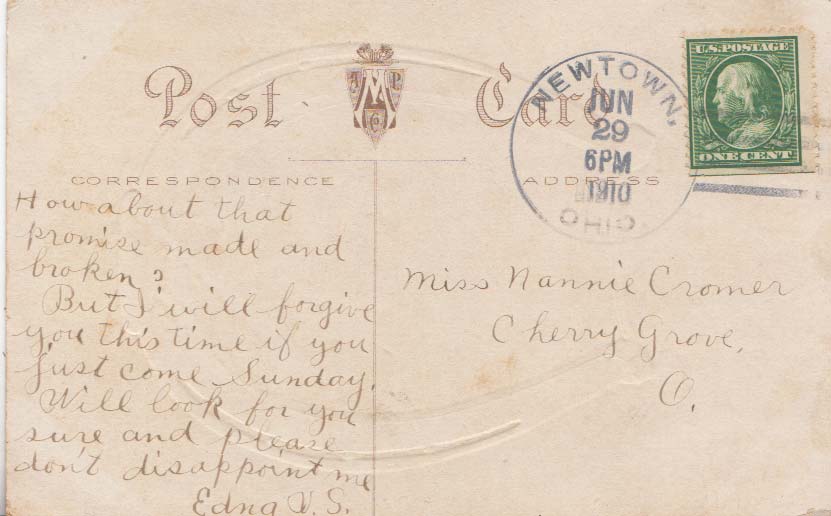 Post Card
A M P
C
CORRESPONDENCE
ADDRESS
NEWTOWN,
JUN
29
6PM
1910
OHIO.
U.S. POSTAGE
ONE CENT
How about that
promise made and
broken?
But I will forgive
you this time if you
just come Sunday.
Will look for you
sure and please
don't disappoint me
Edna V. S.
Miss Nannie Cromer
Cherry Grove,
O.